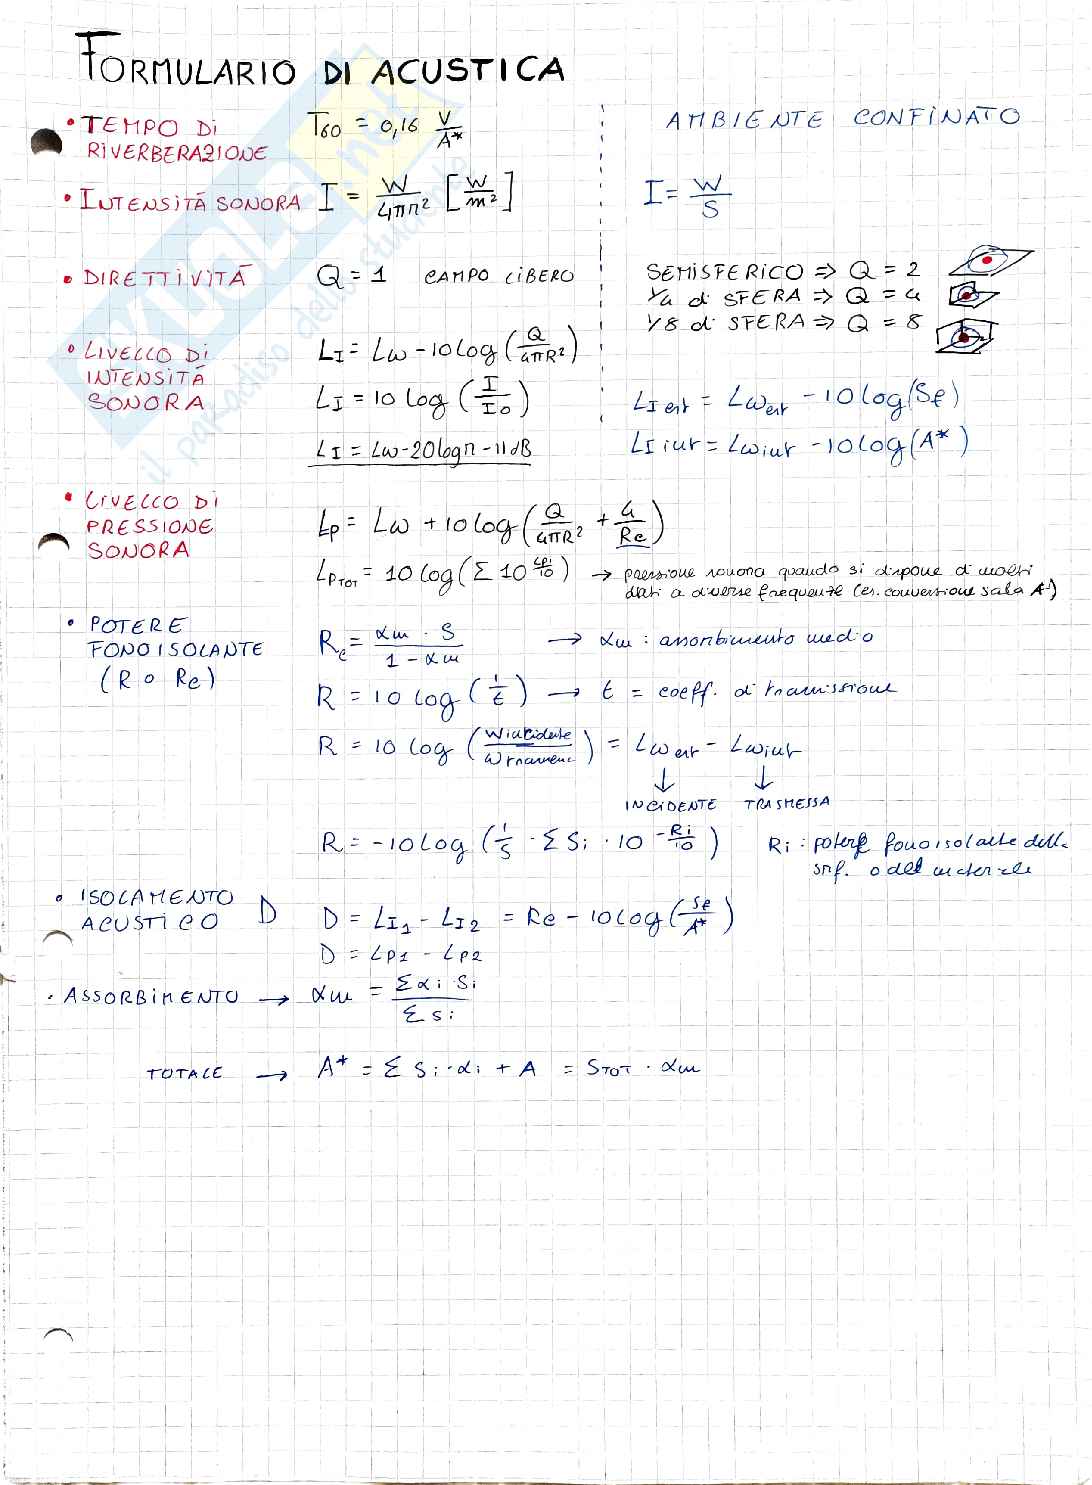 FORMULARIO DI ACUSTICA
• TEMPO DI RIVERBERAZIONE T60 = 0,16 V/A*
AMBIENTE CONFINATO
• INTENSITÁ SONORA I = W/4πr² [W/m²]
I = W/S
• DIRETTIVITÁ Q = 1 CAMPO LIBERO
SEMISFERICO => Q = 2
1/4 di SFERA => Q = 4
1/8 di SFERA => Q = 8
• LIVELLO DI INTENSITÁ SONORA
LI = Lw - 10 log (Q/4πR²)
LI = 10 log (I/I0)
LI = Lw - 20 log r - 11 dB
LI est = Lw est - 10 log (Sf)
LI int = Lw int - 10 log (A*)
• LIVELLO DI PRESSIONE SONORA
Lp = Lw + 10 log (Q/4πR² + 4/Rc)
LpTOT = 10 log (Σ 10^(Lpi/10)) → pressione sonora quando si dispone di molti
dati a diverse frequenze (es. conversione scala A)
• POTERE FONOISOLANTE (R o Rc)
Rc = αm · S / 1 - αm → αm : assorbimento medio
R = 10 log (1/t) → t = coeff. di trasmissione
R = 10 log (Wincidente/W) = Lw est - Lw int
↓ ↓
INCIDENTE TRASMESSA
R = -10 log (1/S · Σ Si · 10^(-Ri/10)) Ri : potere fonoisolante della
sup. o del materiale
• ISOLAMENTO ACUSTICO D D = LI1 - LI2 = Re - 10 log (Sf/A*)
D = Lp1 - Lp2
• ASSORBIMENTO → αm = Σ αi Si / Σ Si
TOTALE → A* = Σ Si · αi + A = STOT · αm
SKUOLA.net
il paradiso dello studente